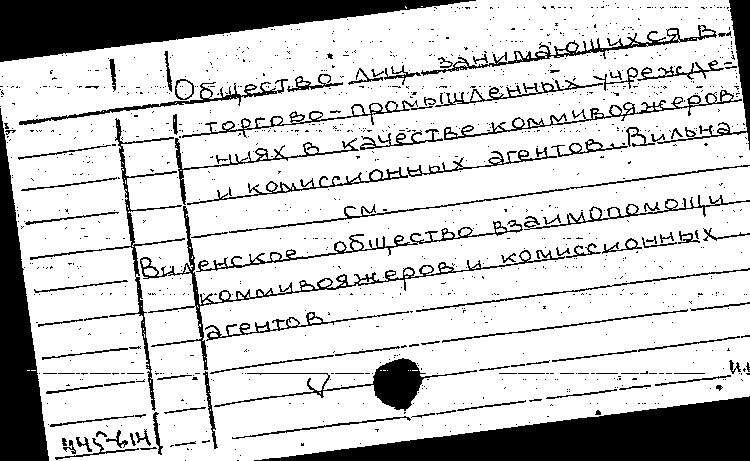 Общество лиц, занимающихся в
торгово-промышленных учрежде-
ниях в качестве коммивояжеров
и комиссионных агентов. Вильна
см.
Виленское общество взаимопомощи
коммивояжеров и комиссионных
агентов.
445-614